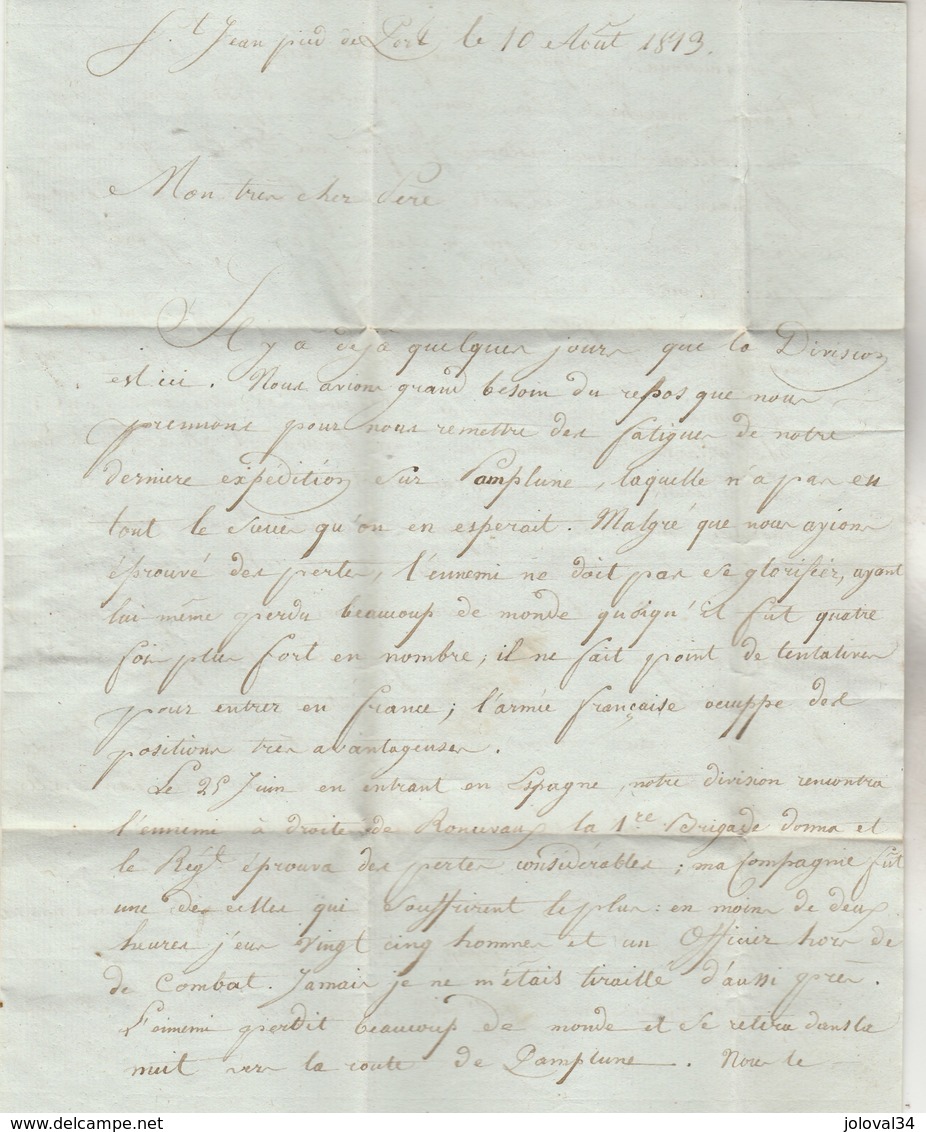 S.t Jean pied de Port le 10 Août 1813.
Mon tres cher Père
Il y a déja quelques jours que la Division
est ici. Nous avions grand besoin du repos que nous
prennons pour nous remettre des fatigues de notre
derniere expédition sur Pamplune, laquelle n'a pas eu
tout le succès qu'on en esperait. Malgré que nous ayions
éprouvé des pertes, l'ennemi ne doit pas se glorifier, ayant
lui-même perdu beaucoup de monde quoiqu'il fût quatre
fois plus fort en nombre; il ne fait point de tentatives
pour entrer en france; l'armée française occuppe des
positions très avantageuses.
Le 25 Juin en entrant en Espagne, notre division rencontra
l'ennemi à droite de Roncevaux la 1re Brigade donna et
le Régt éprouva des pertes considérables; ma Compagnie fût
une de celles qui souffrirent le plus: en moins de deux
heures j'eus vingt cinq hommes et un Officier hors de
de Combat. Jamais je ne m'étais tiraillé d'aussi près.
L'ennemi perdit beaucoup de monde et se retira dans la
nuit vers la route de Pamplune. Nous le
delcampe.net
joloval34